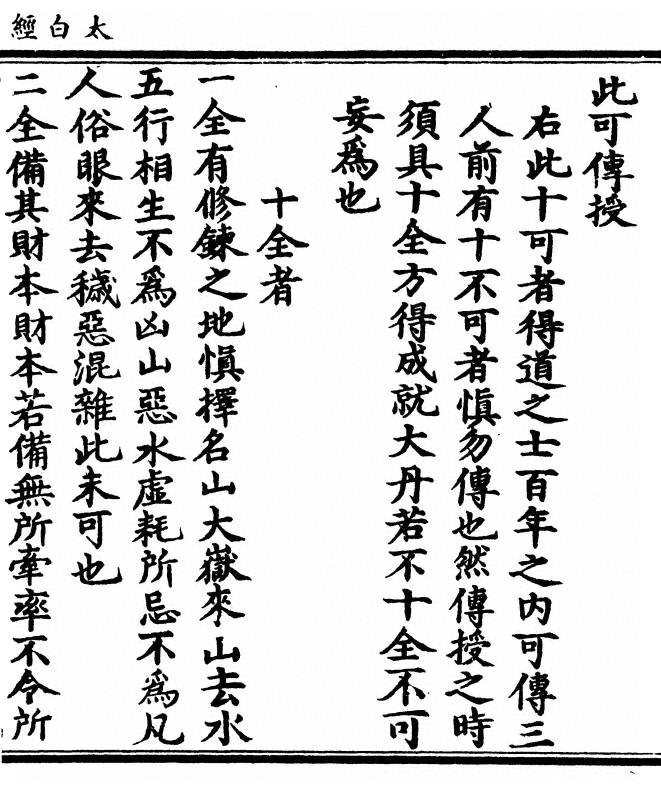 太白經
此可傳授
右此十可者得道之士百年之內可傳三
人前有十不可者慎勿傳也然傳授之時
須具十全方得成就大丹若不十全不可
妄爲也
十全者
一全有修鍊之地慎擇名山大嶽來山去水
五行相生不爲凶山惡水虛耗所忌不為凡
人俗眼來去穢惡混雜此未可也
二全備其財本財本若備無所牽率不令所